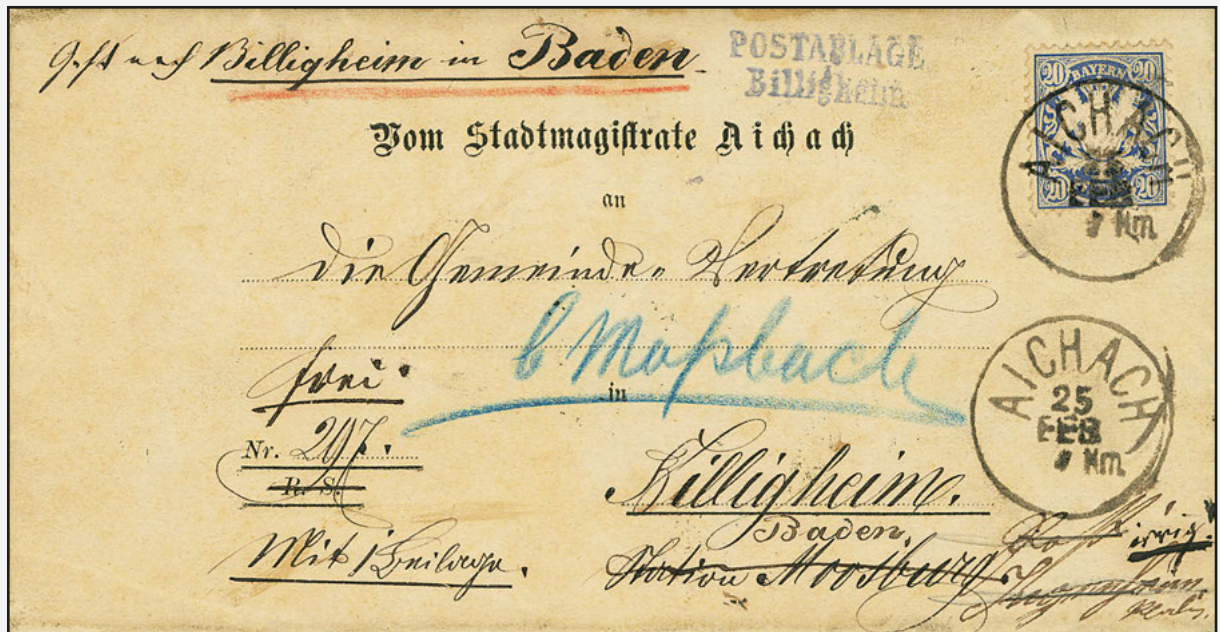 Geht nach Billigheim in Baden
POSTABLAGE
Billigheim
20 BAYERN 20
20 20
AICHACH
FEB
7 Nm.
Vom Stadtmagiſtrate Aichach
an
die Gemeinde-Vertretung
b Moßbach
in
frei.
Nr. 297.
R. S.
AICHACH
25
FEB
7 Nm.
Billigheim.
Baden.
Mit 1 Beilage.
Station Moosburg
Post irrig.